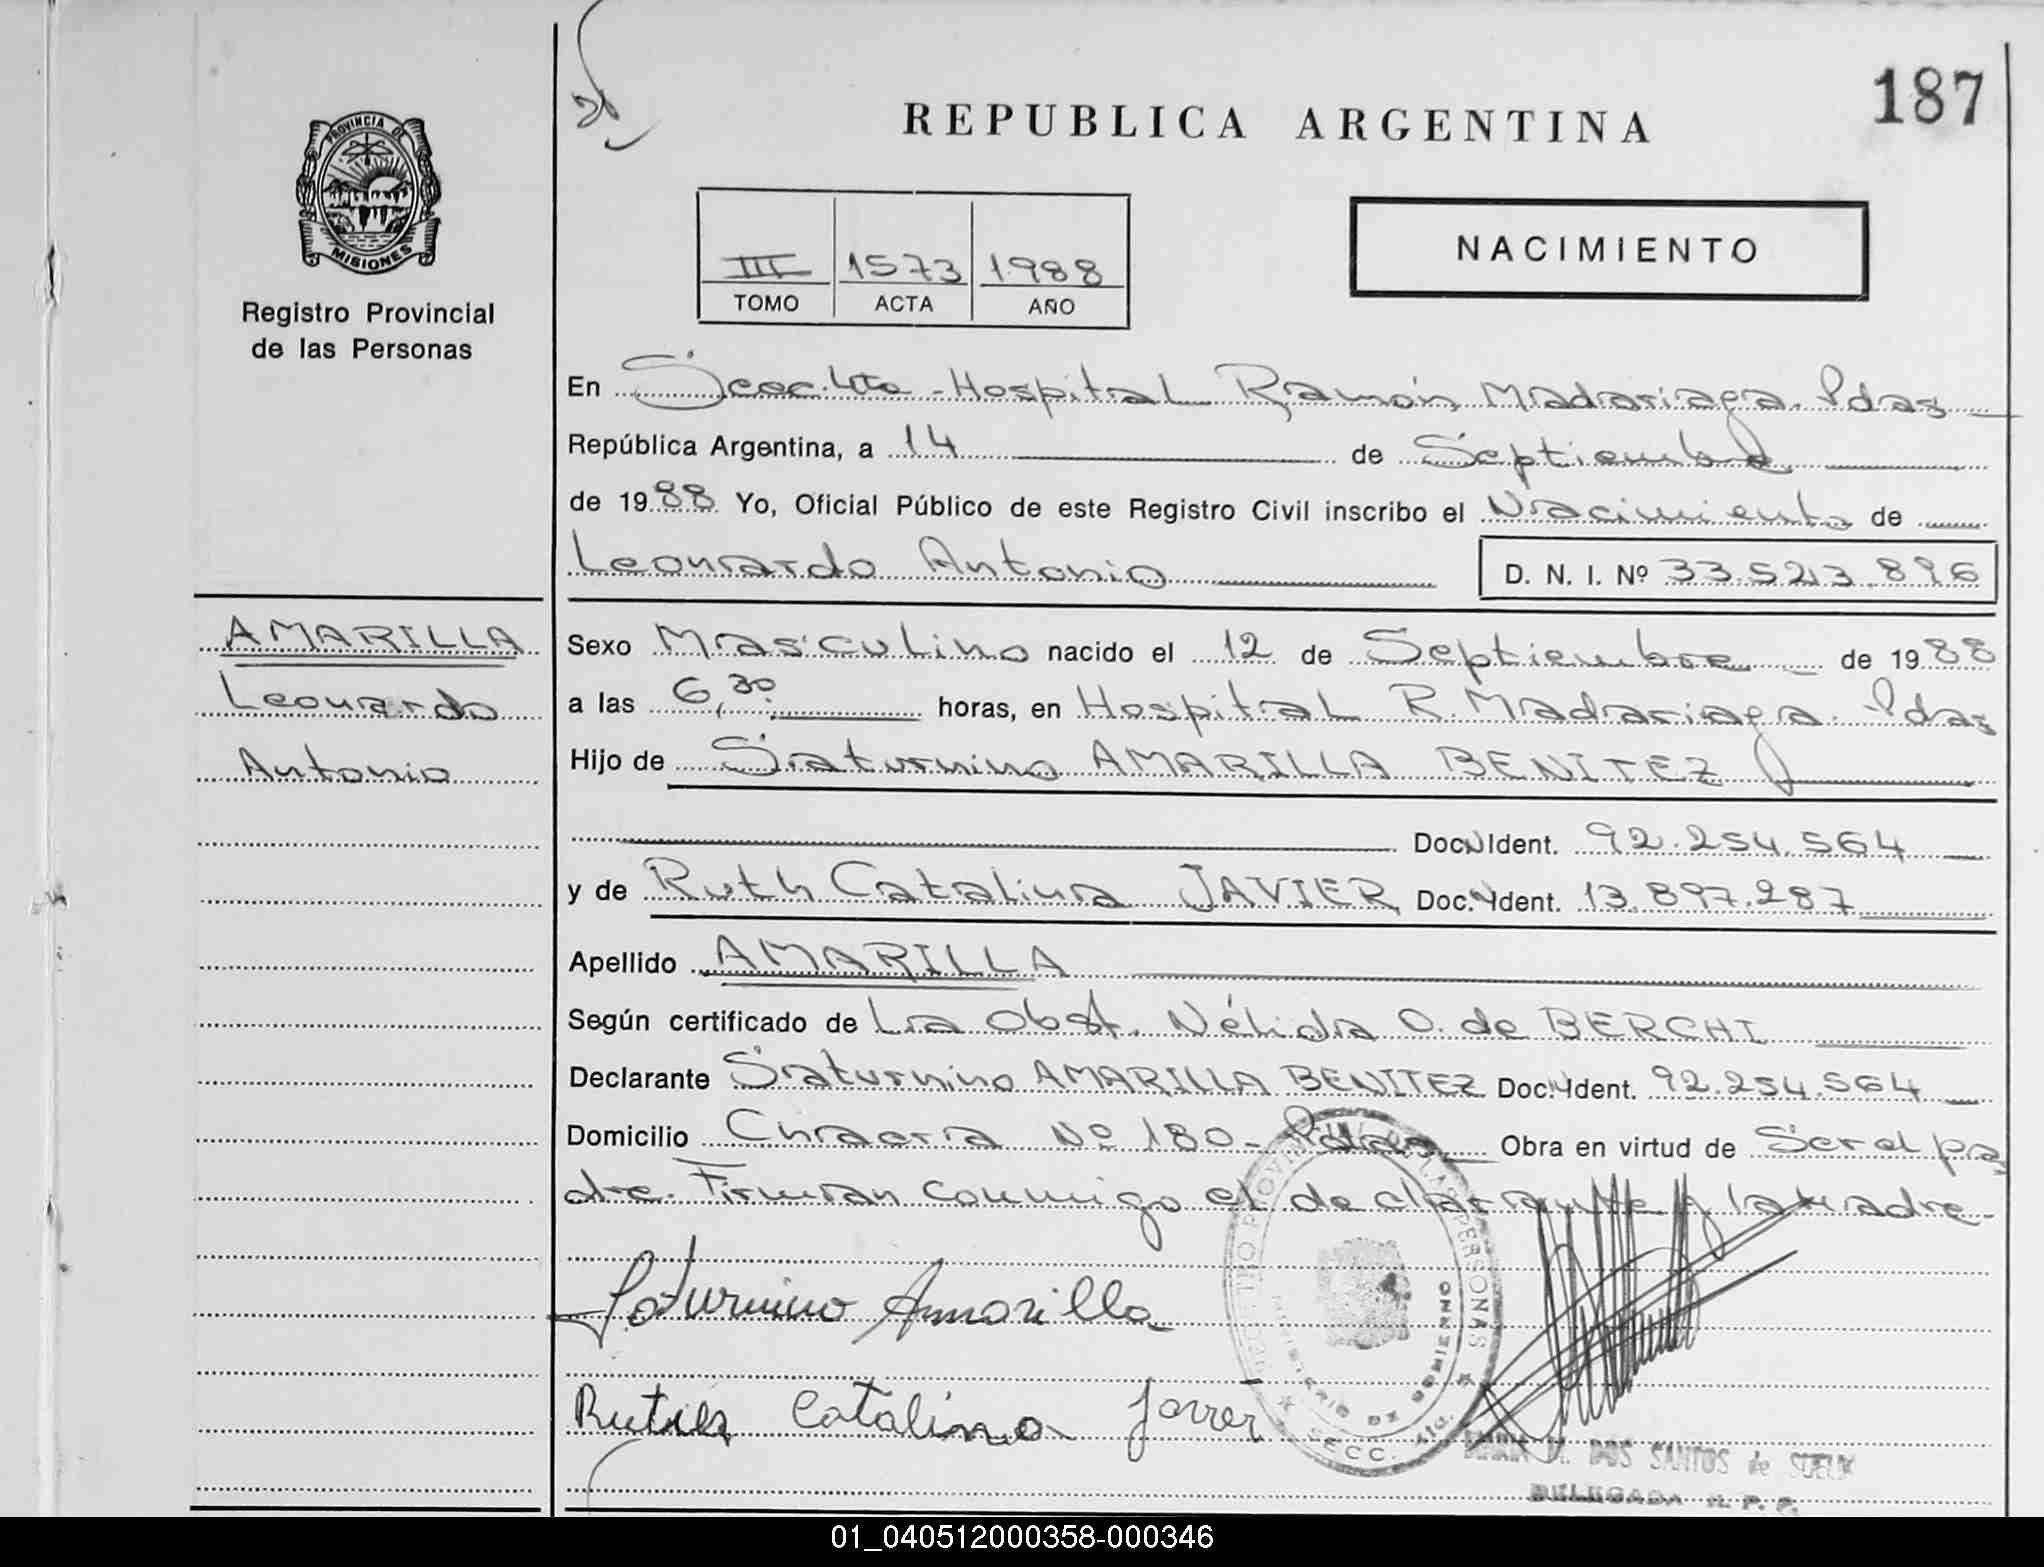 187
REPUBLICA ARGENTINA
PROVINCIA DE
MISIONES
Registro Provincial
de las Personas
NACIMIENTO
III 1573 1988
TOMO ACTA AÑO
En Secc. 4ta - Hospital Ramón Madariaga. Pdas
República Argentina, a 14 de Septiembre
de 1988 Yo, Oficial Público de este Registro Civil inscribo el Nacimiento de
Leonardo Antonio D. N. I. Nº 33.523.896
AMARILLA
Leonardo
Antonio
Sexo Masculino nacido el 12 de Septiembre de 1988
a las 6,30 horas, en Hospital R. Madariaga. Pdas
Hijo de Saturnino AMARILLA BENITEZ
Doc. Ident. 92.254.564
y de Ruth Catalina JAVIER Doc. Ident. 13.897.287
Apellido AMARILLA
Según certificado de La Obst. Nélida O. de BERCHI
Declarante Saturnino AMARILLA BENITEZ Doc. Ident. 92.254.564
Domicilio Chacra Nº 180 - Pdas Obra en virtud de Ser el pa
dre. Firman conmigo el declarante y la madre
Saturnino Amarilla
Catalina
REGISTRO PROVINCIAL DE LAS PERSONAS
MINISTERIO DE GOBIERNO
SECC. 4ta.
DOS SANTOS de
DELEGADA R. P. P.
01_040512000358-000346